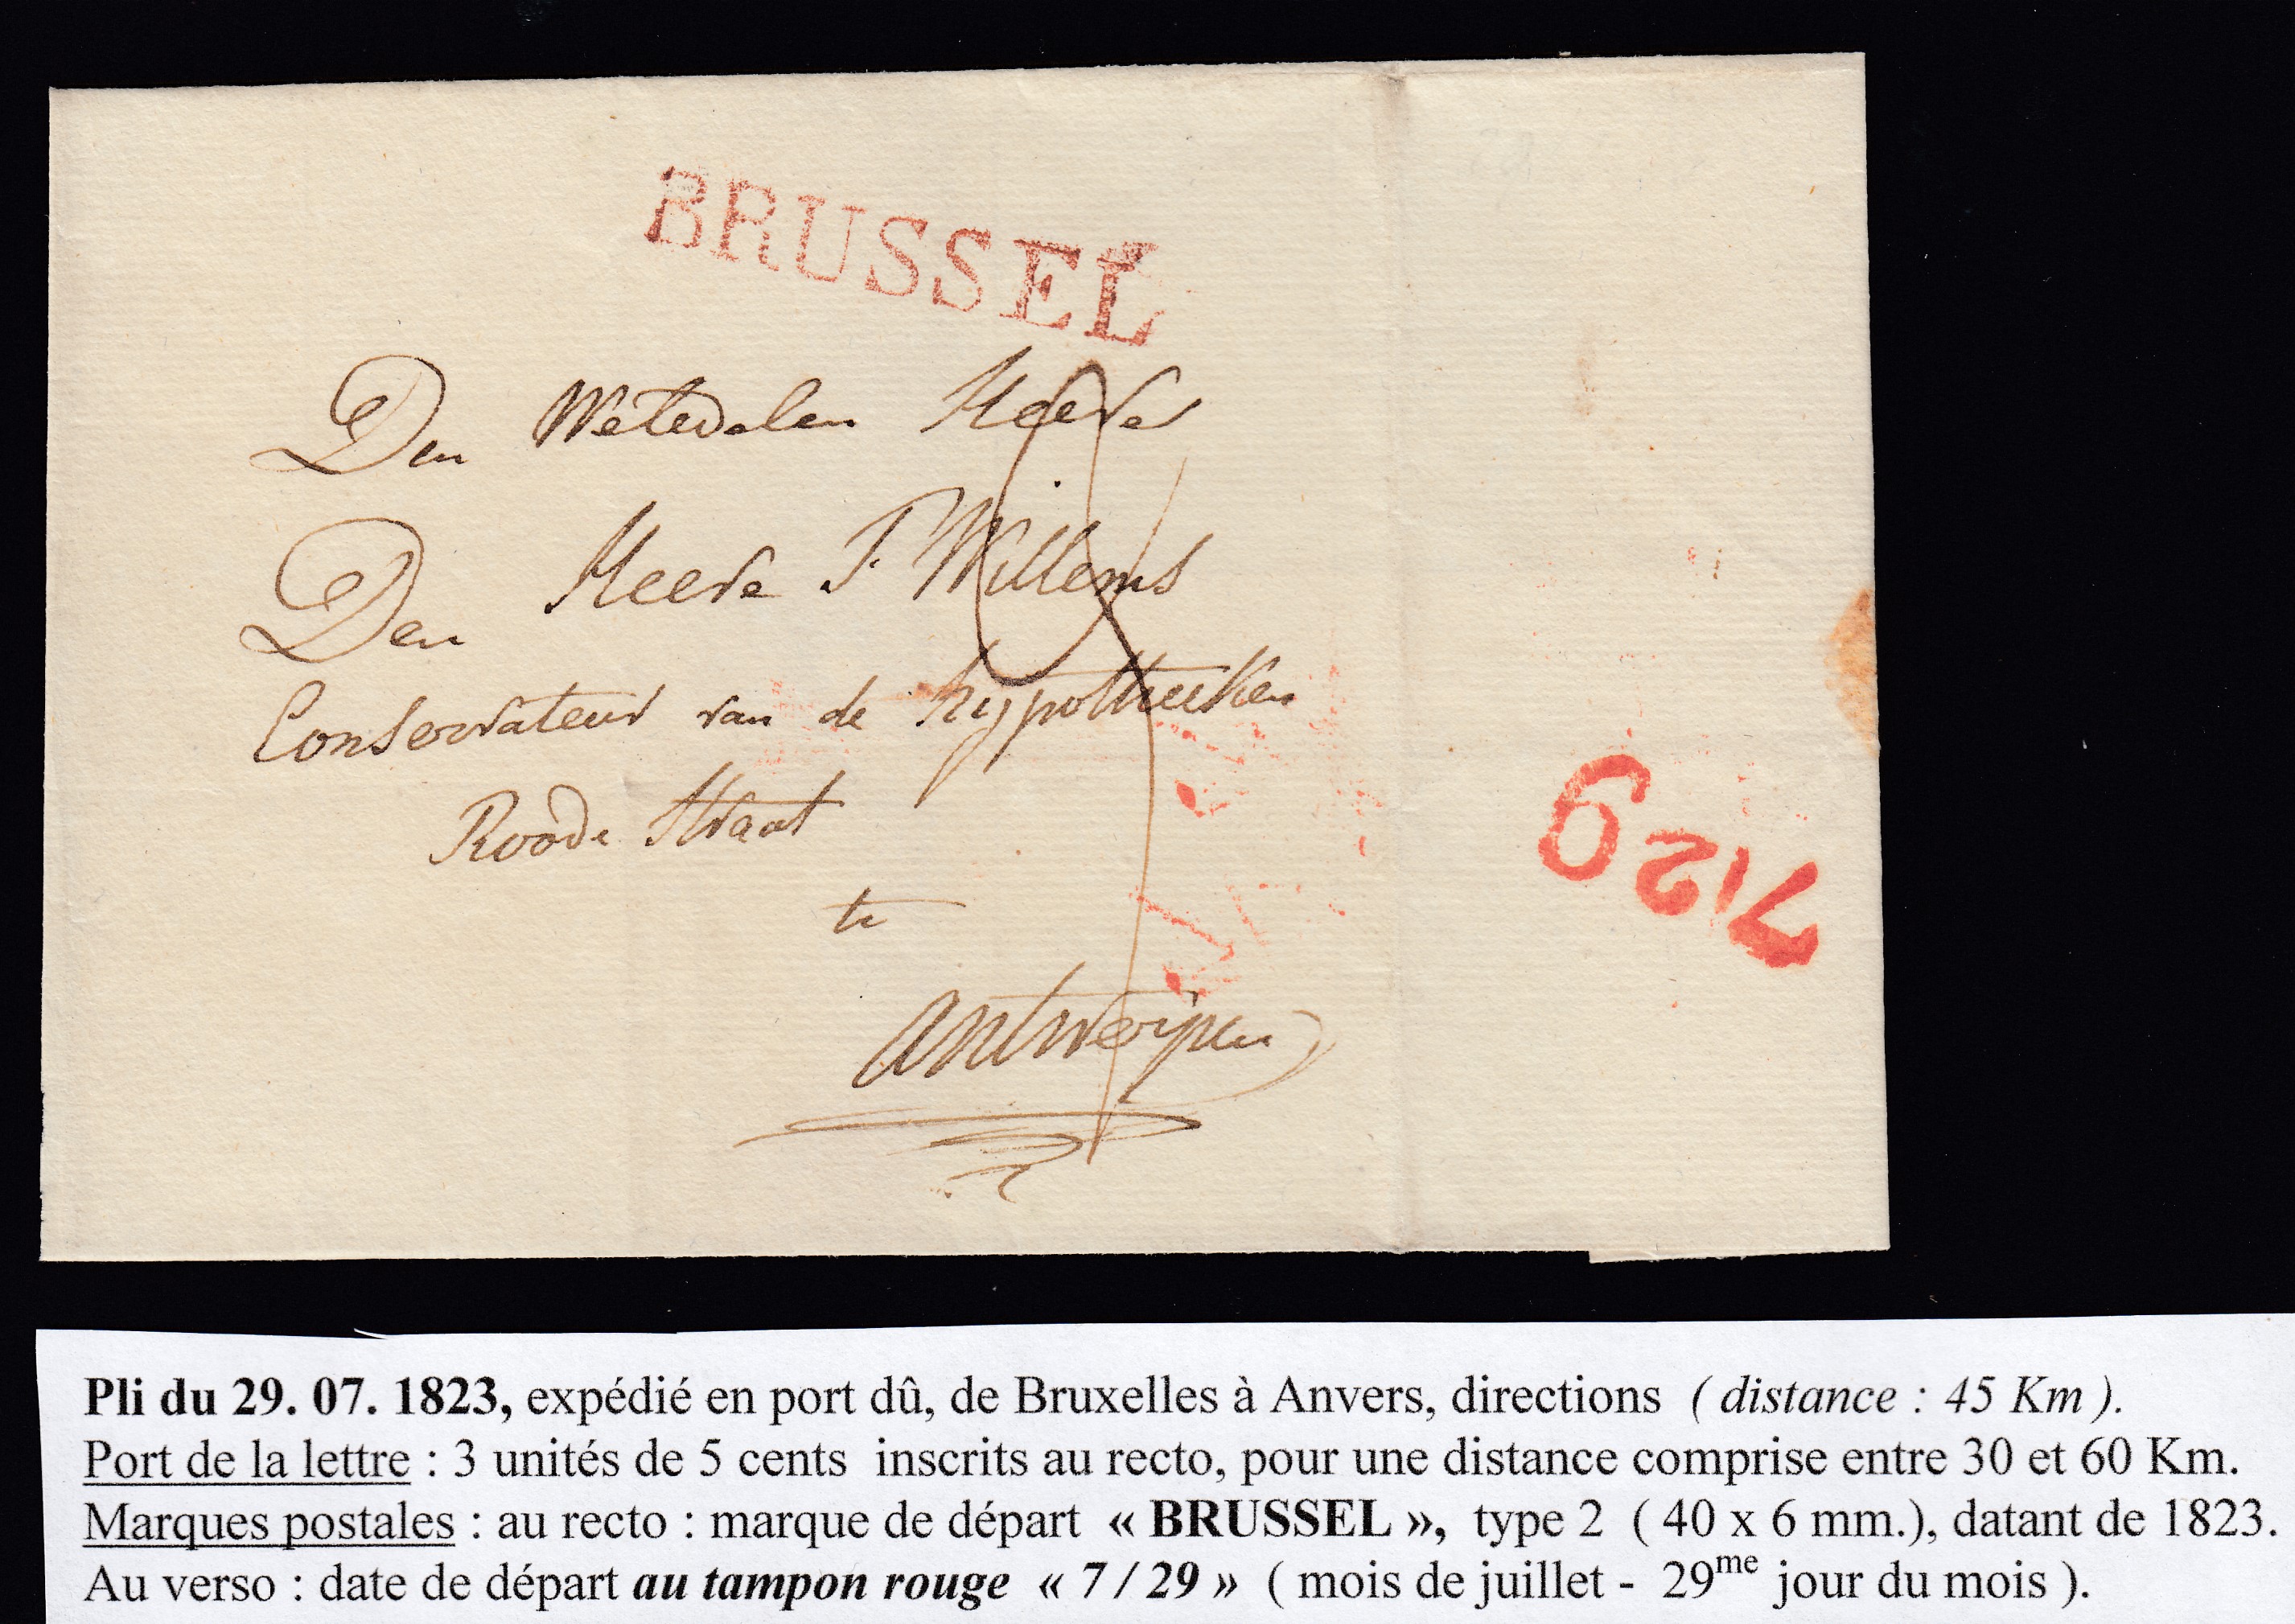 BRUSSEL
Den Weledelen Heere
Den Heere J. Willems
Conservateur van de hypotheeken
Roode Straat
te
Antwerpen
7/29
Pli du 29. 07. 1823, expédié en port dû, de Bruxelles à Anvers, directions ( distance : 45 Km ).
Port de la lettre : 3 unités de 5 cents inscrits au recto, pour une distance comprise entre 30 et 60 Km.
Marques postales : au recto : marque de départ « BRUSSEL », type 2 ( 40 x 6 mm.), datant de 1823.
Au verso : date de départ au tampon rouge « 7 / 29 » ( mois de juillet - 29me jour du mois ).